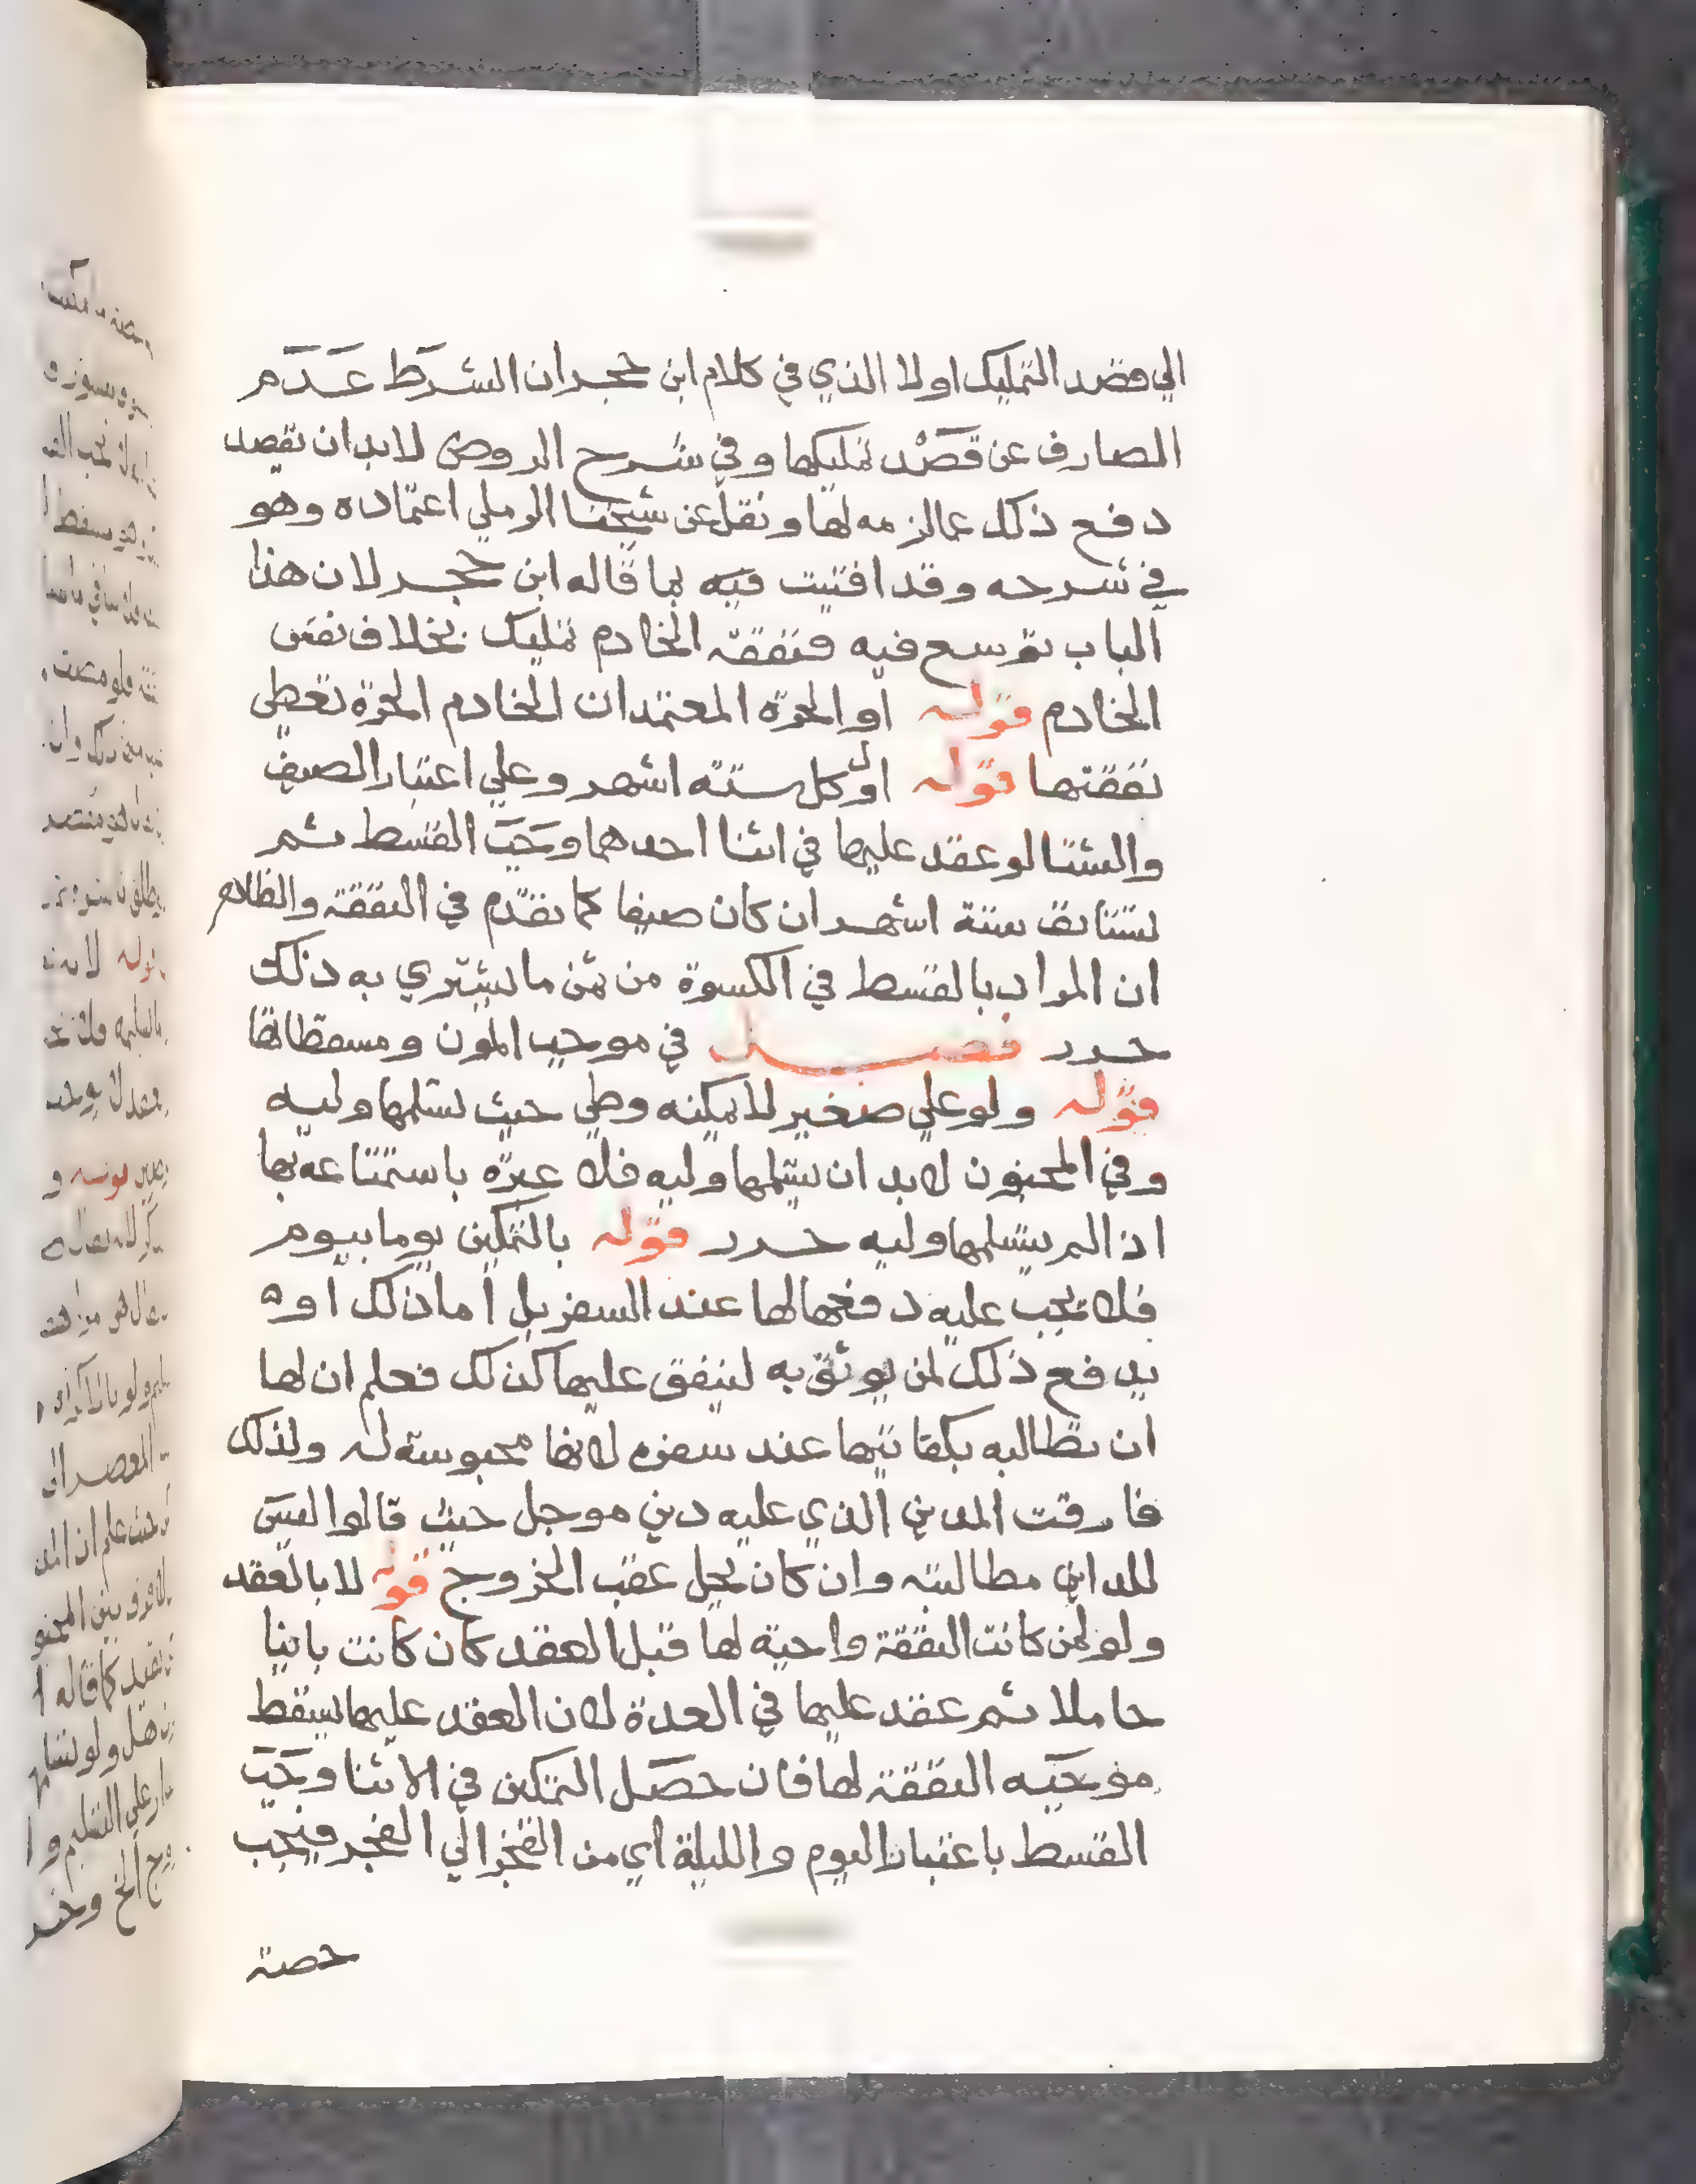 الي قصد التمليك اولا الذي في كلام ابن حجر ان الشرط عدم
الصارف عن قصد تمليكها وفي شرح الروض لابد ان يقصد
دفع ذلك عما لزمه لها ونقل عن شيخنا الرملي اعتماده وهو
في شرحه وقد افتيت فيه بما قاله ابن حجر لان هذا
الباب توسع فيه فنفقة الخادم تمليك بخلاف نفس
الخادم قوله او الحرة المعتمد ان الخادم الحرة تعطي
نفقتها قوله اول كل ستة اشهر وعلي اعتبار الصيف
والشتا لو عقد عليها في اثنا احدهما وجب القسط ثم
تستانف ستة اشهر ان كان صيفا كما تقدم في النفقة والظاهر
ان المراد بالقسط في الكسوة من ثمن ما يشتري به ذلك
حرر فصل في موجب المون ومسقطاتها
قوله ولو علي صغير لا يمكنه وطي حيث تسلمها وليه
وفي المجنون لابد ان يتسلمها وليه فلا عبرة باستمتاعه بها
اذ الم يتسلمها وليه حرر قوله بالتمكين يوما بيوم
فلا يجب عليه دفعها لها عند السفر بل اما ذلك او
يدفع ذلك لمن يوثق به لينفق عليها كذلك فعلم ان لها
ان تطالبه بكفايتها عند سفره لانها محبوسة له ولذلك
فارقت المدين الذي عليه دين موجل حيث قالوا ليس
للداين مطالبته وان كان يحل عقب الخروج قوله لا بالعقد
ولو لمن كانت النفقة واجبة لها قبل العقد كان كانت باينا
حاملا ثم عقد عليها في العدة لان العقد عليها يسقط
موجبه النفقة لها فان حصل التمكين في الاثنا وجب
القسط باعتبار اليوم والليلة اي من الفجر الي الفجر فيجب
حصة